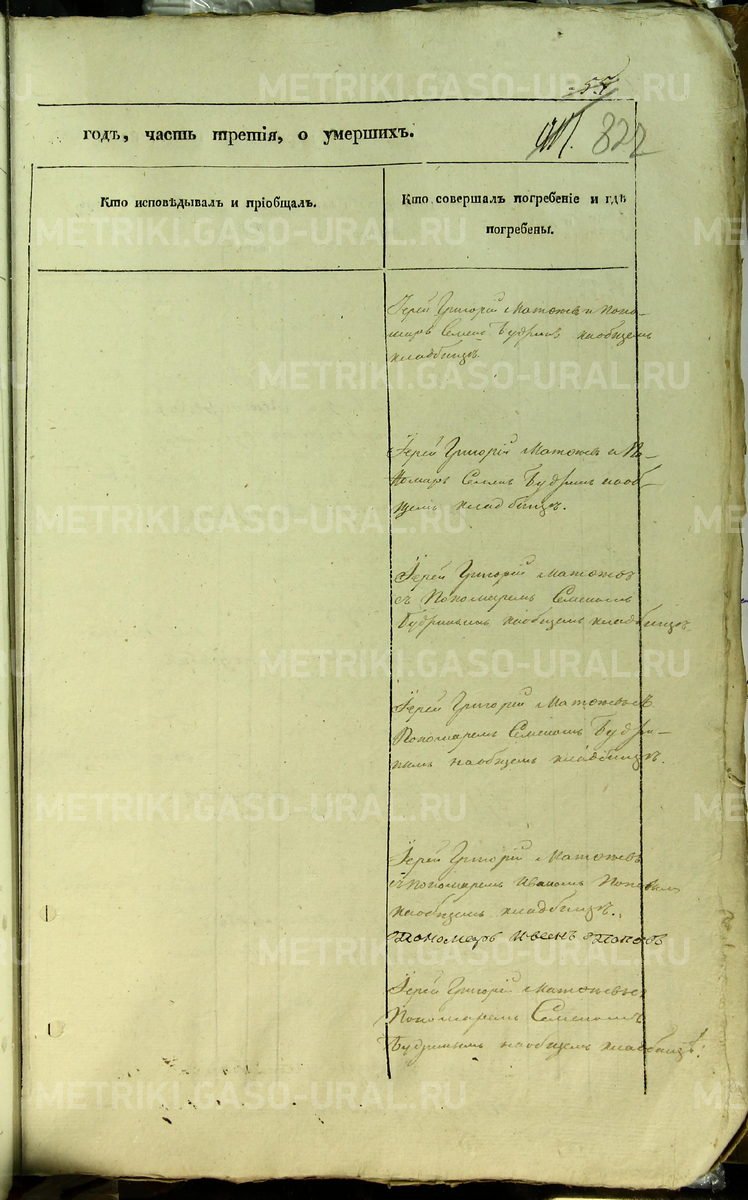 57
годъ, часть третія, о умершихъ.
822
Кто исповѣдывалъ и пріобщалъ.
Кто совершалъ погребеніе и гдѣ
погребены.
Іерей Григорій Матѳѣевъ и Поно-
марь Семенъ Будринъ наобщемъ
кладбищѣ.
Іерей Григорій Матѳѣевъ и По-
номарь Семенъ Будринъ наоб-
щемъ кладбищѣ.
Іерей Григорій Матѳѣевъ
съ Пономаремъ Семеномъ
Будринымъ наобщемъ кладбищѣ.
Іерей Григорій Матѳѣевъ съ
Пономаремъ Семеномъ Будри-
нымъ наобщемъ кладбищѣ.
Іерей Григорій Матѳѣевъ
съ пономаремъ Иваномъ Поповымъ
наобщемъ кладбищѣ.
Пономарь Иванъ Поповъ
Іерей Григорій Матѳѣевъ съ
Пономаремъ Семеномъ
Будринымъ наобщемъ кладбищѣ.
METRIKI.GASO-URAL.RU